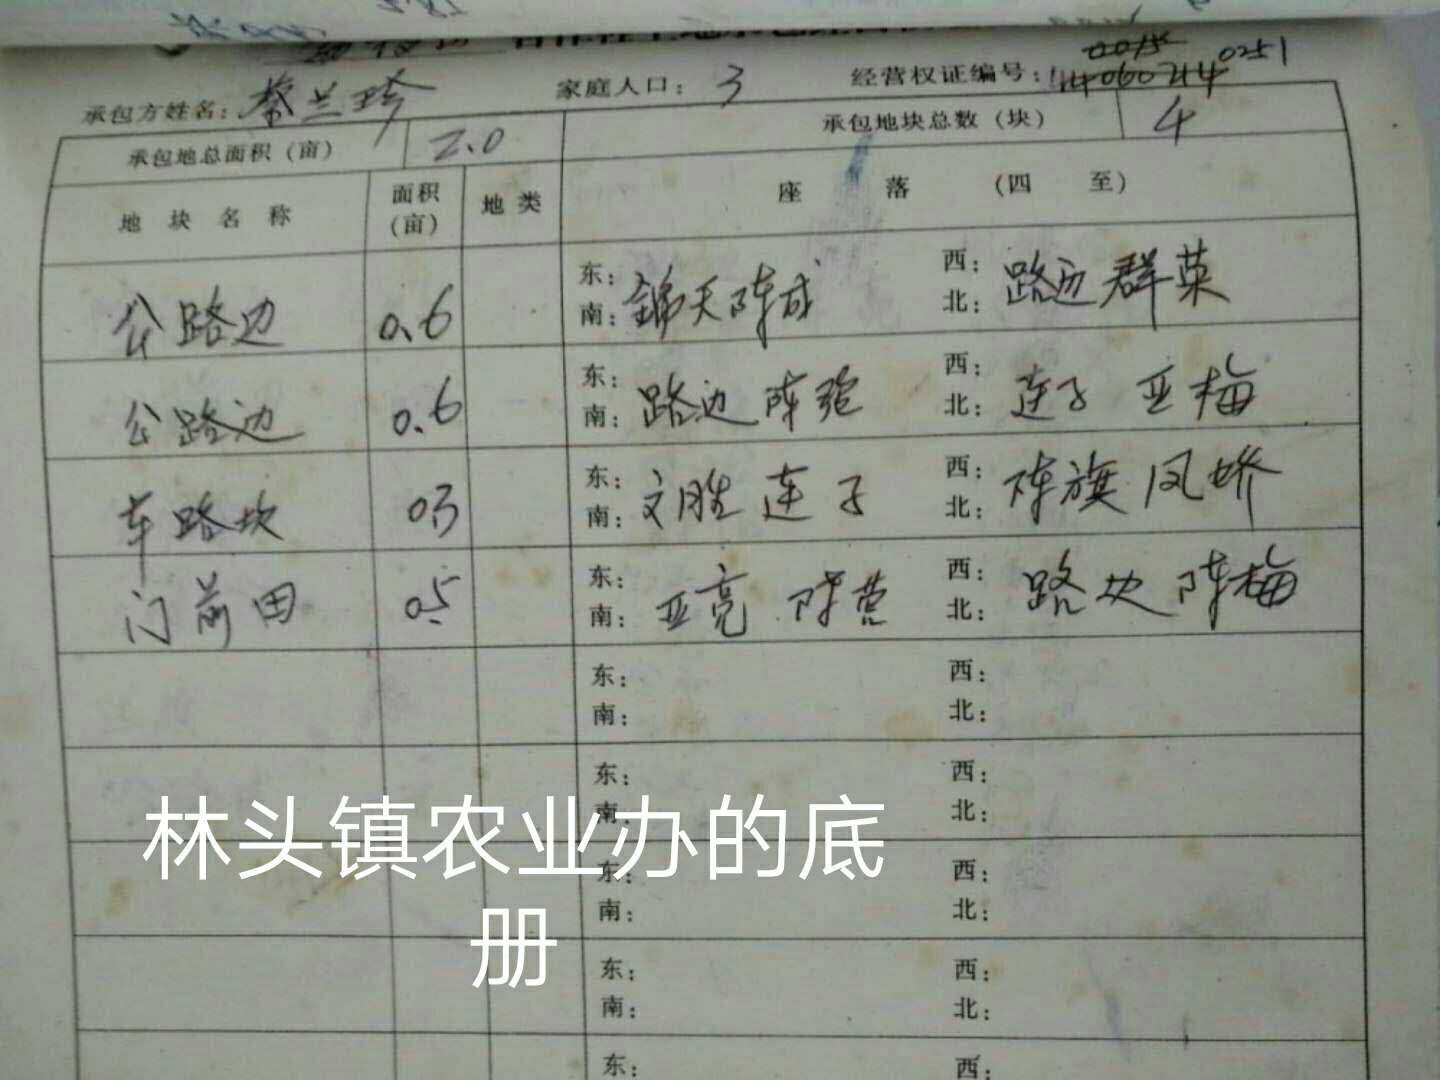 承包方姓名：蔡兰珍 家庭人口：3 经营权证编号：0251
承包地总面积（亩） 2.0 承包地块总数（块） 4
地块名称 面积（亩） 地类 座落（四至）
公路边 0.6 东： 南： 锦天 陈成 西： 北： 路边 群英
公路边 0.6 东： 南： 路边 陈 西： 北： 连子 亚梅
车路坎 03 东： 南： 文胜 连子 西： 北： 陈旗 凤娇
门前田 0.5 东： 南： 亚亮 陈营 西： 北： 路坎 陈梅
东： 西：
南： 北：
东： 西：
南： 北：
东： 西：
南： 北：
东： 西：
南： 北：
东： 西：
林头镇农业办的底
册